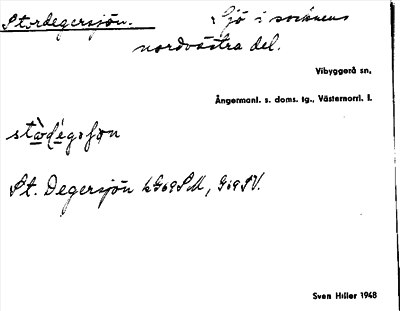 Stordegersjön. Sjö i socknens
nordvästra del.
Vibyggerå sn,
Ångermanl. s. doms. tg., Västernorrl. l.
St. Degersjön
Sven Hiller 1948